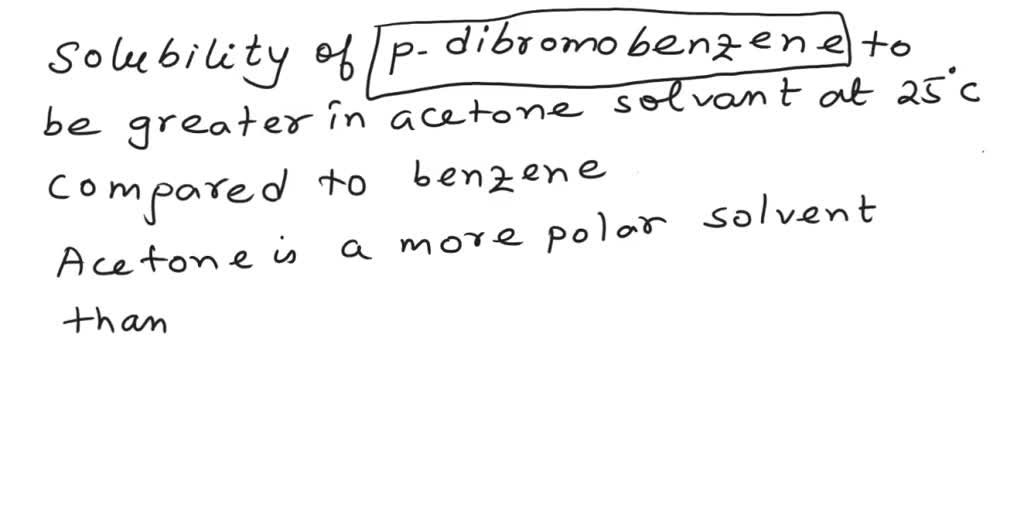 Solubility of p-dibromobenzene to
be greater in acetone solvant at 25°c
compared to benzene
Acetone is a more polar solvent
than